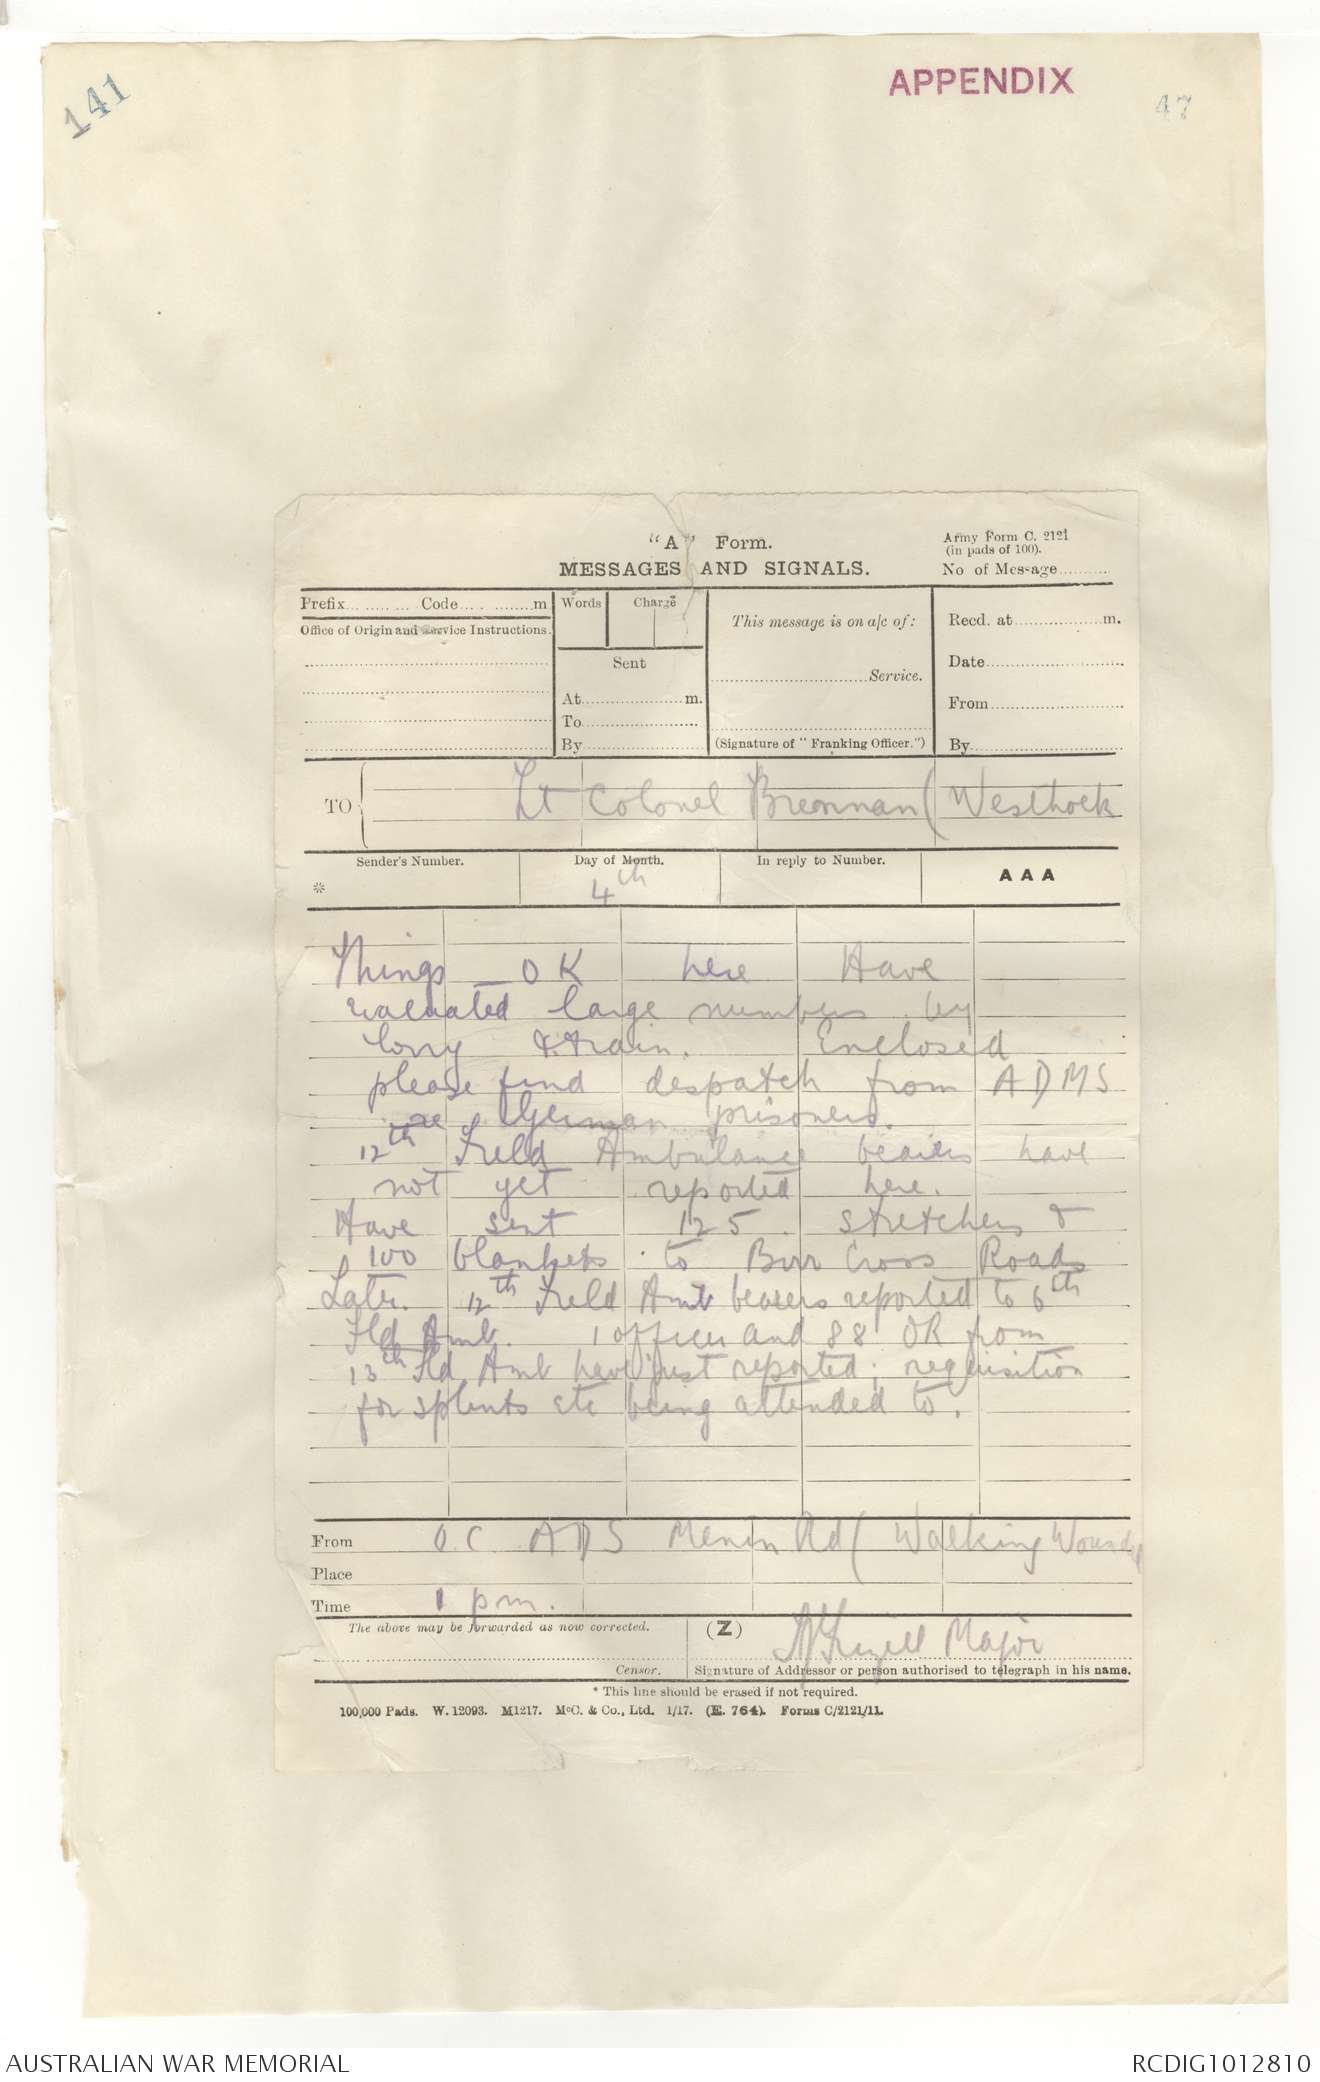 141
APPENDIX
47
"A" Form.
MESSAGES AND SIGNALS.
Army Form C. 2121
(in pads of 100).
No of Message..........
Prefix.... ....... ... Code.... . ........m
Words
Charge
This message is on a/c of:
Recd. at..................m.
Office of Origin and Service Instructions.
Sent
Date............................
..............................Service.
At....................m.
From...........................
To......................
By......................
(Signature of "Franking Officer.")
By..............................
TO
Lt Colonel Brennan (Westhoek
Sender's Number.
Day of Month.
In reply to Number.
AAA
*
4th
Things OK here Have
evacuated large numbers by
lorry & train. Enclosed
please find despatch from ADMS
re German prisoners.
12th Field Ambulance bearers have
not yet reported here.
Have sent 125 stretchers &
100 blankets to Birr Cross Roads
Later. 12th Field Amb bearers reported to 6th
Fld Amb. 1 officer and 88 OR from
13th Fld Amb have just reported; requisition
for splints etc being attended to.
From
O.C. ADS Menin Rd (Walking Wounded
Place
Time
1 pm.
The above may be forwarded as now corrected.
(Z)
Major
Censor.
Signature of Addressor or person authorised to telegraph in his name.
* This line should be erased if not required.
100,000 Pads. W. 12093. M1217. McC. & Co., Ltd. 1/17. (E. 764). Forms C/2121/11.
AUSTRALIAN WAR MEMORIAL
RCDIG1012810